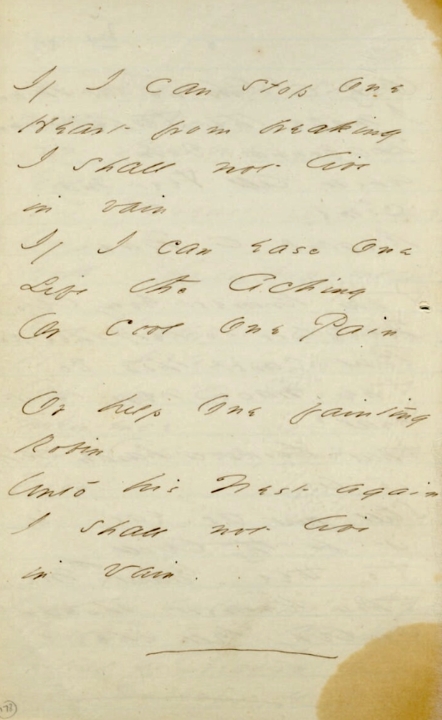 If I can stop One
Heart from breaking
I shall not live
in vain
If I can ease One
Life the Aching
Or cool One Pain
Or help One fainting
Robin
Unto his Nest again
I shall not live
in vain.